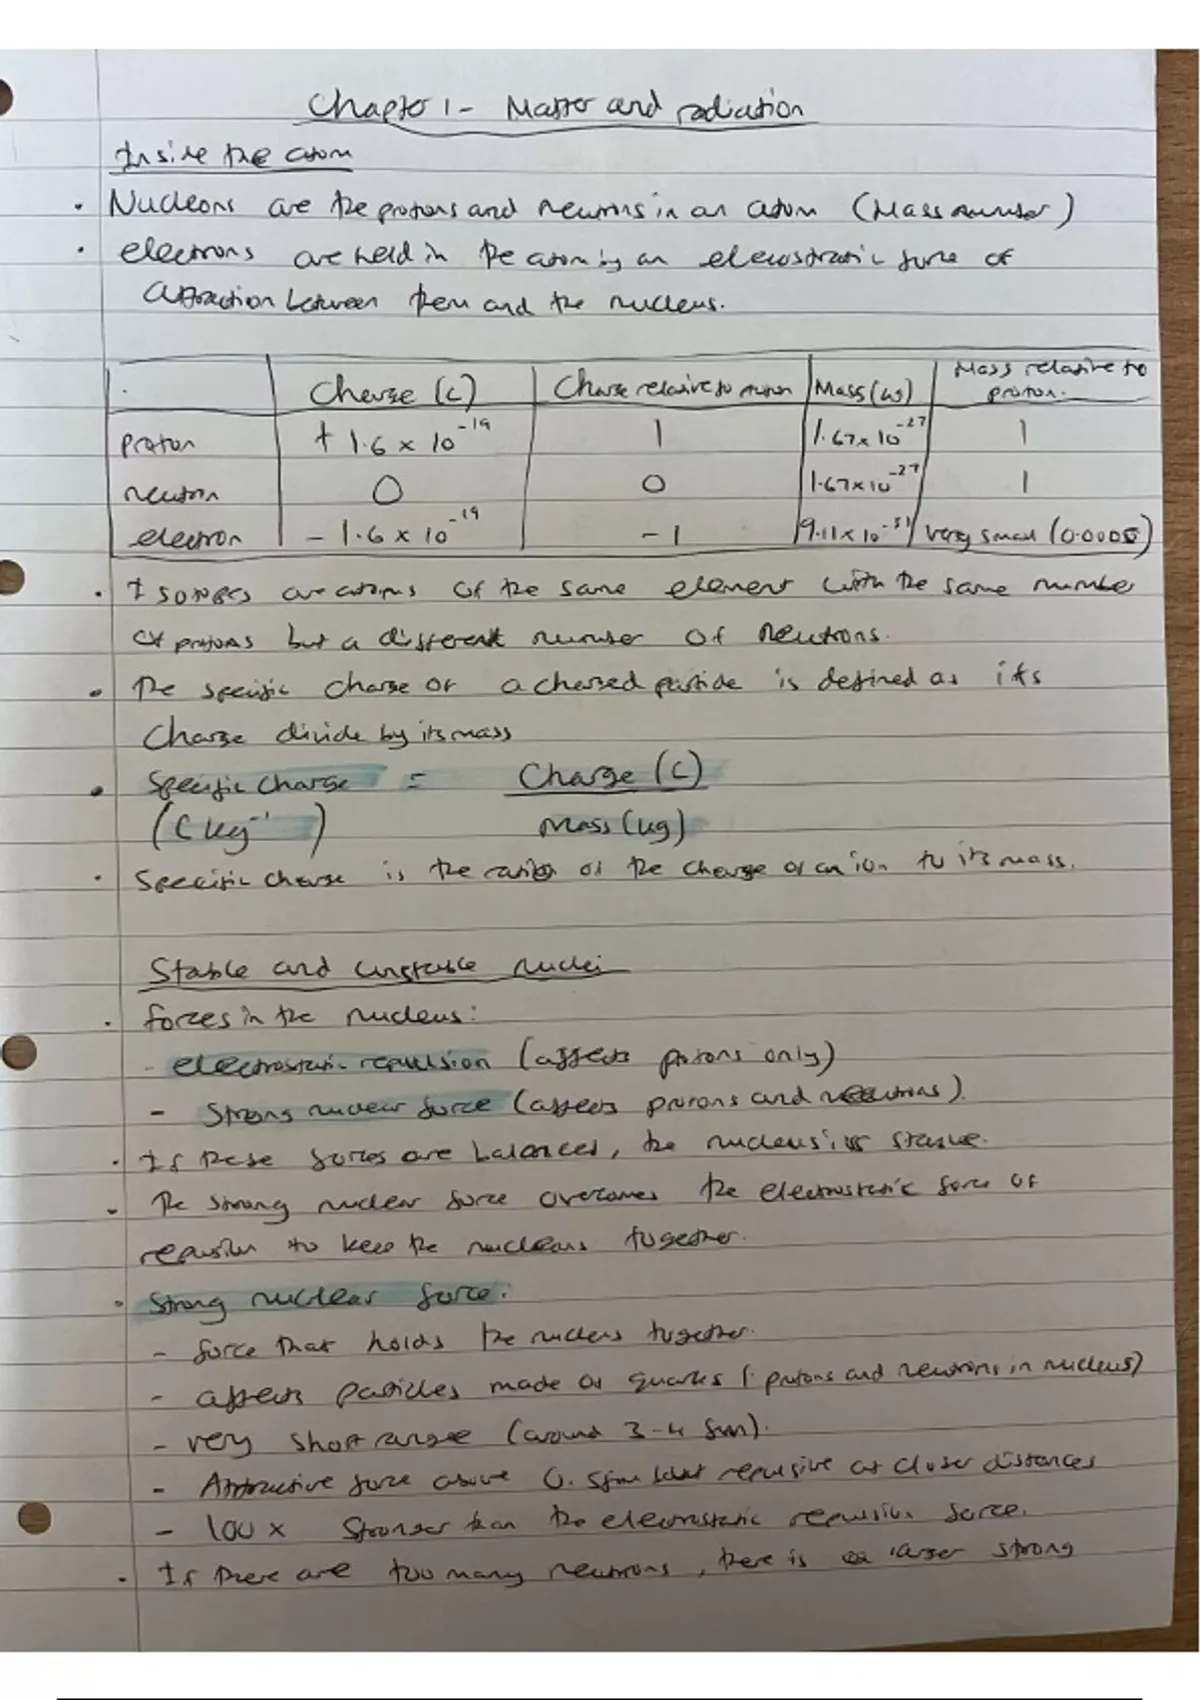 Chapter 1 - Matter and radiation
Inside the atom
• Nucleons are the protons and neutrons in an atom (Mass number)
• electrons are held in the atom by an electrostatic force of
attraction between them and the nucleus.
Charge (C) Charge relative to proton Mass (kg) Mass relative to proton.
proton + 1.6 × 10⁻¹⁹ 1 1.67×10⁻²⁷ 1
neutron 0 0 1.67×10⁻²⁷ 1
electron - 1.6 × 10⁻¹⁹ -1 9.11×10⁻³¹ very small (0.0005)
• Isotopes are atoms of the same element with the same number
of protons but a different number of neutrons.
• The specific charge of a charged particle is defined as its
charge divide by its mass
• Specific charge = Charge (C)
(C kg⁻¹) Mass (kg)
• Specific charge is the ratio of the charge of an ion to its mass.
Stable and unstable nuclei
• forces in the nucleus:
- electrostatic repulsion (affects protons only)
- Strong nuclear force (affects protons and neutrons).
• If these forces are balanced, the nucleus is stable.
• The strong nuclear force overcomes the electrostatic force of
repulsion to keep the nucleus together.
• Strong nuclear force:
- force that holds the nucleus together.
- affects particles made of quarks (protons and neutrons in nucleus)
- very short range (around 3-4 fm).
- Attractive force above 0.5fm but repulsive at closer distances
- 100 × stronger than the electrostatic repulsive force.
• If there are too many neutrons, there is a larger strong